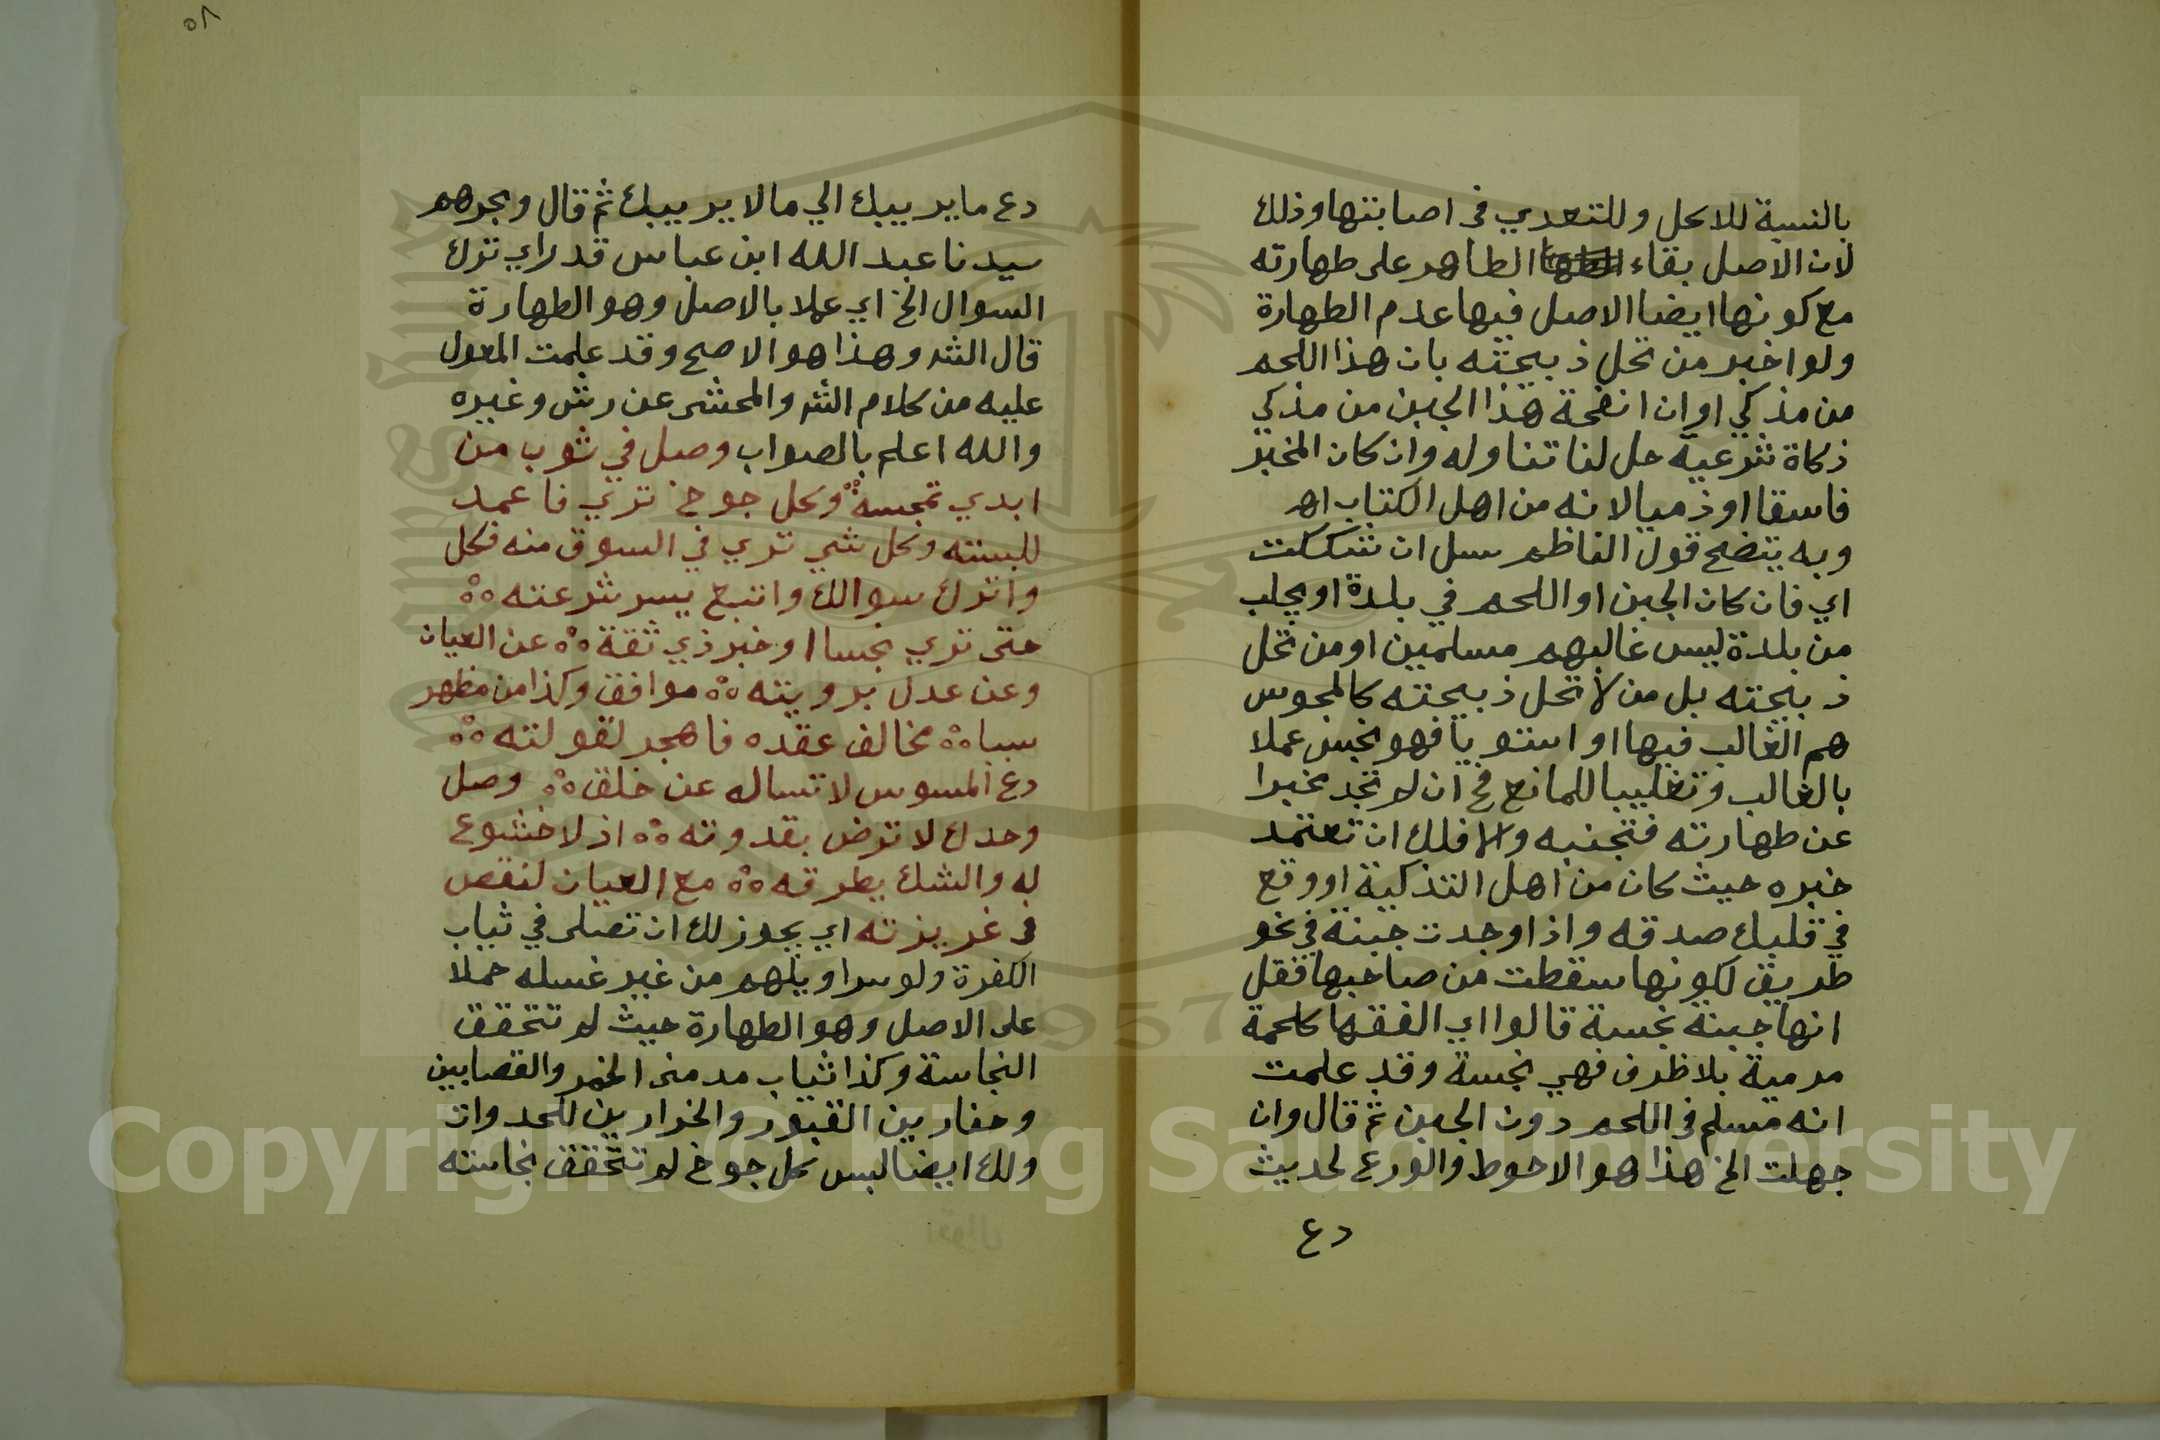 بالنسبة للاكل وللتعدي فى اصابتها وذلك
لان الاصل بقاء الطاهر على طهارته
مع كونها ايضا الاصل فيها عدم الطهارة
ولو اخبر من تحل ذبيحته بان هذا اللحم
من مذكي او ان انفحة هذا الجبن من مذكي
ذكاة شرعية حل لنا تناوله وان كان المخبر
فاسقا او ذميا لانه من اهل الكتاب اهـ
وبه يتضح قول الناظم سل ان شككت
اي فان كان الجبن او اللحم في بلدة او يجلب
من بلدة ليس غالبهم مسلمين او من تحل
ذبيحته بل من لا تحل ذبيحته كالمجوس
هم الغالب فيها او استويا فهو نجس عملا
بالغالب وتغليبا للمانع فح ان لم تجد مخبرا
عن طهارته فتجنبه والا فلك ان تعتمد
خبره حيث كان من اهل التذكية او وقع
في قلبك صدقه واذا وجدت جبنة في نحو
طريق لكونها سقطت من صاحبها فقل
انها جبنه نجسة قالوا اي الفقها كلحمة
مرمية بلا ظرف فهي نجسة وقد علمت
انه مسلم فى اللحم دون الجبن ثم قال وان
جهلت الخ هذا هو الاحوط والورع لحديث
دع
٥٨
دع ما يريبك الي ما لا يريبك ثم قال وبحرهم
سيدنا عبد الله ابن عباس قد راي ترك
السوال الخ اي عملا بالاصل وهو الطهارة
قال الشر وهذا هو الاصح وقد علمت المعول
عليه من كلام الشر والمحشى عن رش وغيره
والله اعلم بالصواب وصل في ثوب من
ابدي تمجسة وكل جوخ تري فاعمد
للبسته وكل شي تري في السوق منه فكل
واترك سوالك واتبع يسر شرعته
حتى تري نجسا او خبر ذي ثقة عن العيان
وعن عدل برويته موافق وكذا من مظهر
سببا مخالف عقده فاهجر لقولته
دع الموسوس لا تساله عن خلق وصل
وحدك لا ترض بقدوته اذ لا خشوع
له والشك يطرقه مع العيان لنقص
فى غريزته اي يجوز لك ان تصلى في ثياب
الكفرة ولو سراويلهم من غير غسله حملا
على الاصل وهو الطهارة حيث لم تتحقق
النجاسة وكذا ثياب مدمنى الخمر والقصابين
وحفارين القبور والخرارين للحدوات
ولك ايضا لبس كل جوخ لم تتحقق نجاسته
Copyright © King Saud University
1957